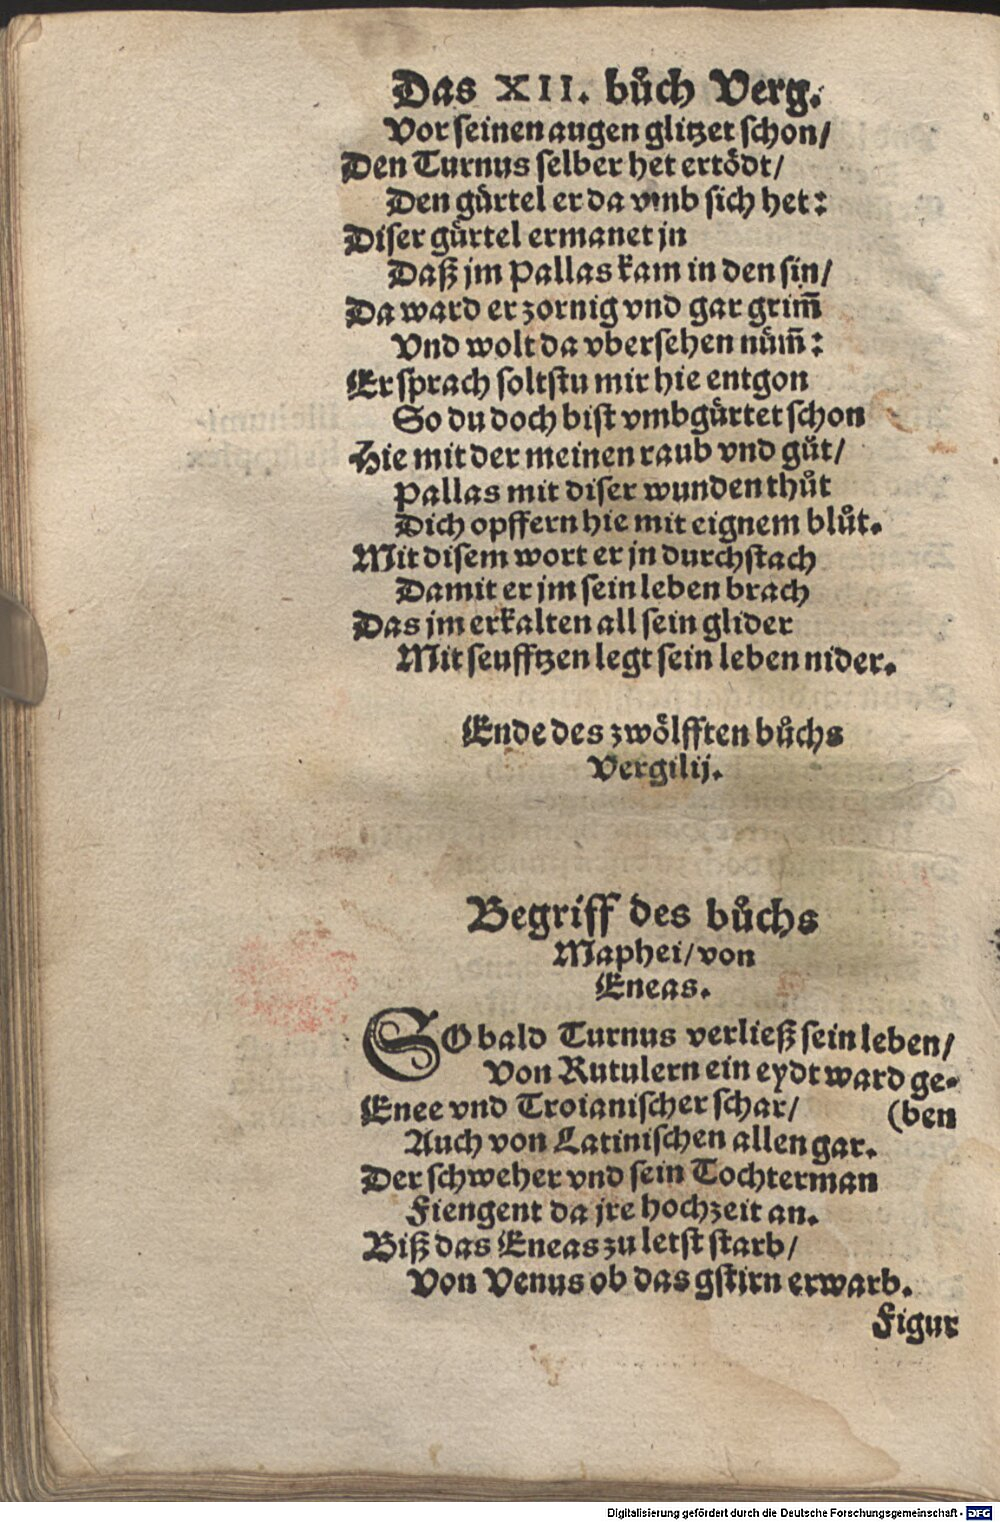 Das XII. bůch Verg.
Vor seinen augen glitzet schon/
Den Turnus selber het ertödt/
Den gürtel er da vmb sich het:
Diser gürtel ermanet jn
Daß jm Pallas kam in den sin/
Da ward er zornig vnd gar grim̄
Vnd wolt da vbersehen nüm̄:
Er sprach soltstu mir hie entgon
So du doch bist vmbgürtet schon
Hie mit der meinen raub vnd gůt/
Pallas mit diser wunden thůt
Dich opffern hie mit eignem blůt.
Mit disem wort er jn durchstach
Damit er jm sein leben brach
Das jm erkalten all sein glider
Mit seufftzen legt sein leben nider.
Ende des zwölfften bůchs
Vergilij.
Begriff des bůchs
Maphei/von
Eneas.
SO bald Turnus verließ sein leben/
Von Rutulern ein eydt ward ge-
Enee vnd Troianischer schar/ (ben
Auch von Latinischen allen gar.
Der schweher vnd sein Tochterman
Fiengent da jre hochzeit an.
Biß das Eneas zu letst starb/
Von Venus ob das gstirn erwarb.
Figur
Digitalisierung gefördert durch die Deutsche Forschungsgemeinschaft - DFG